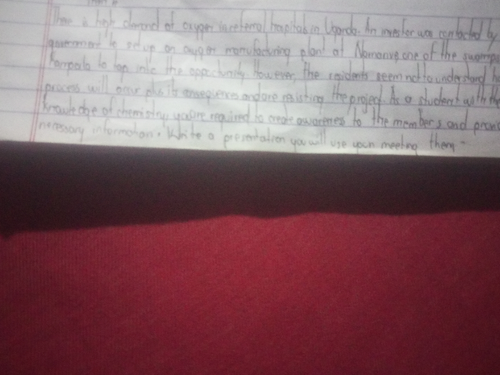 There is high demand of oxygen in referral hospitals in Uganda. An investor was contacted by
government to set up an oxygen manufacturing plant at Namanve one of the swamps
Kampala to tap into the opportunity. However, the residents seem not to understand
process will occur plus its consequences and are resisting the project. As a student with the
knowledge of chemistry, you're required to create awareness to the members and
necessary information. Write a presentation you will use upon meeting them.